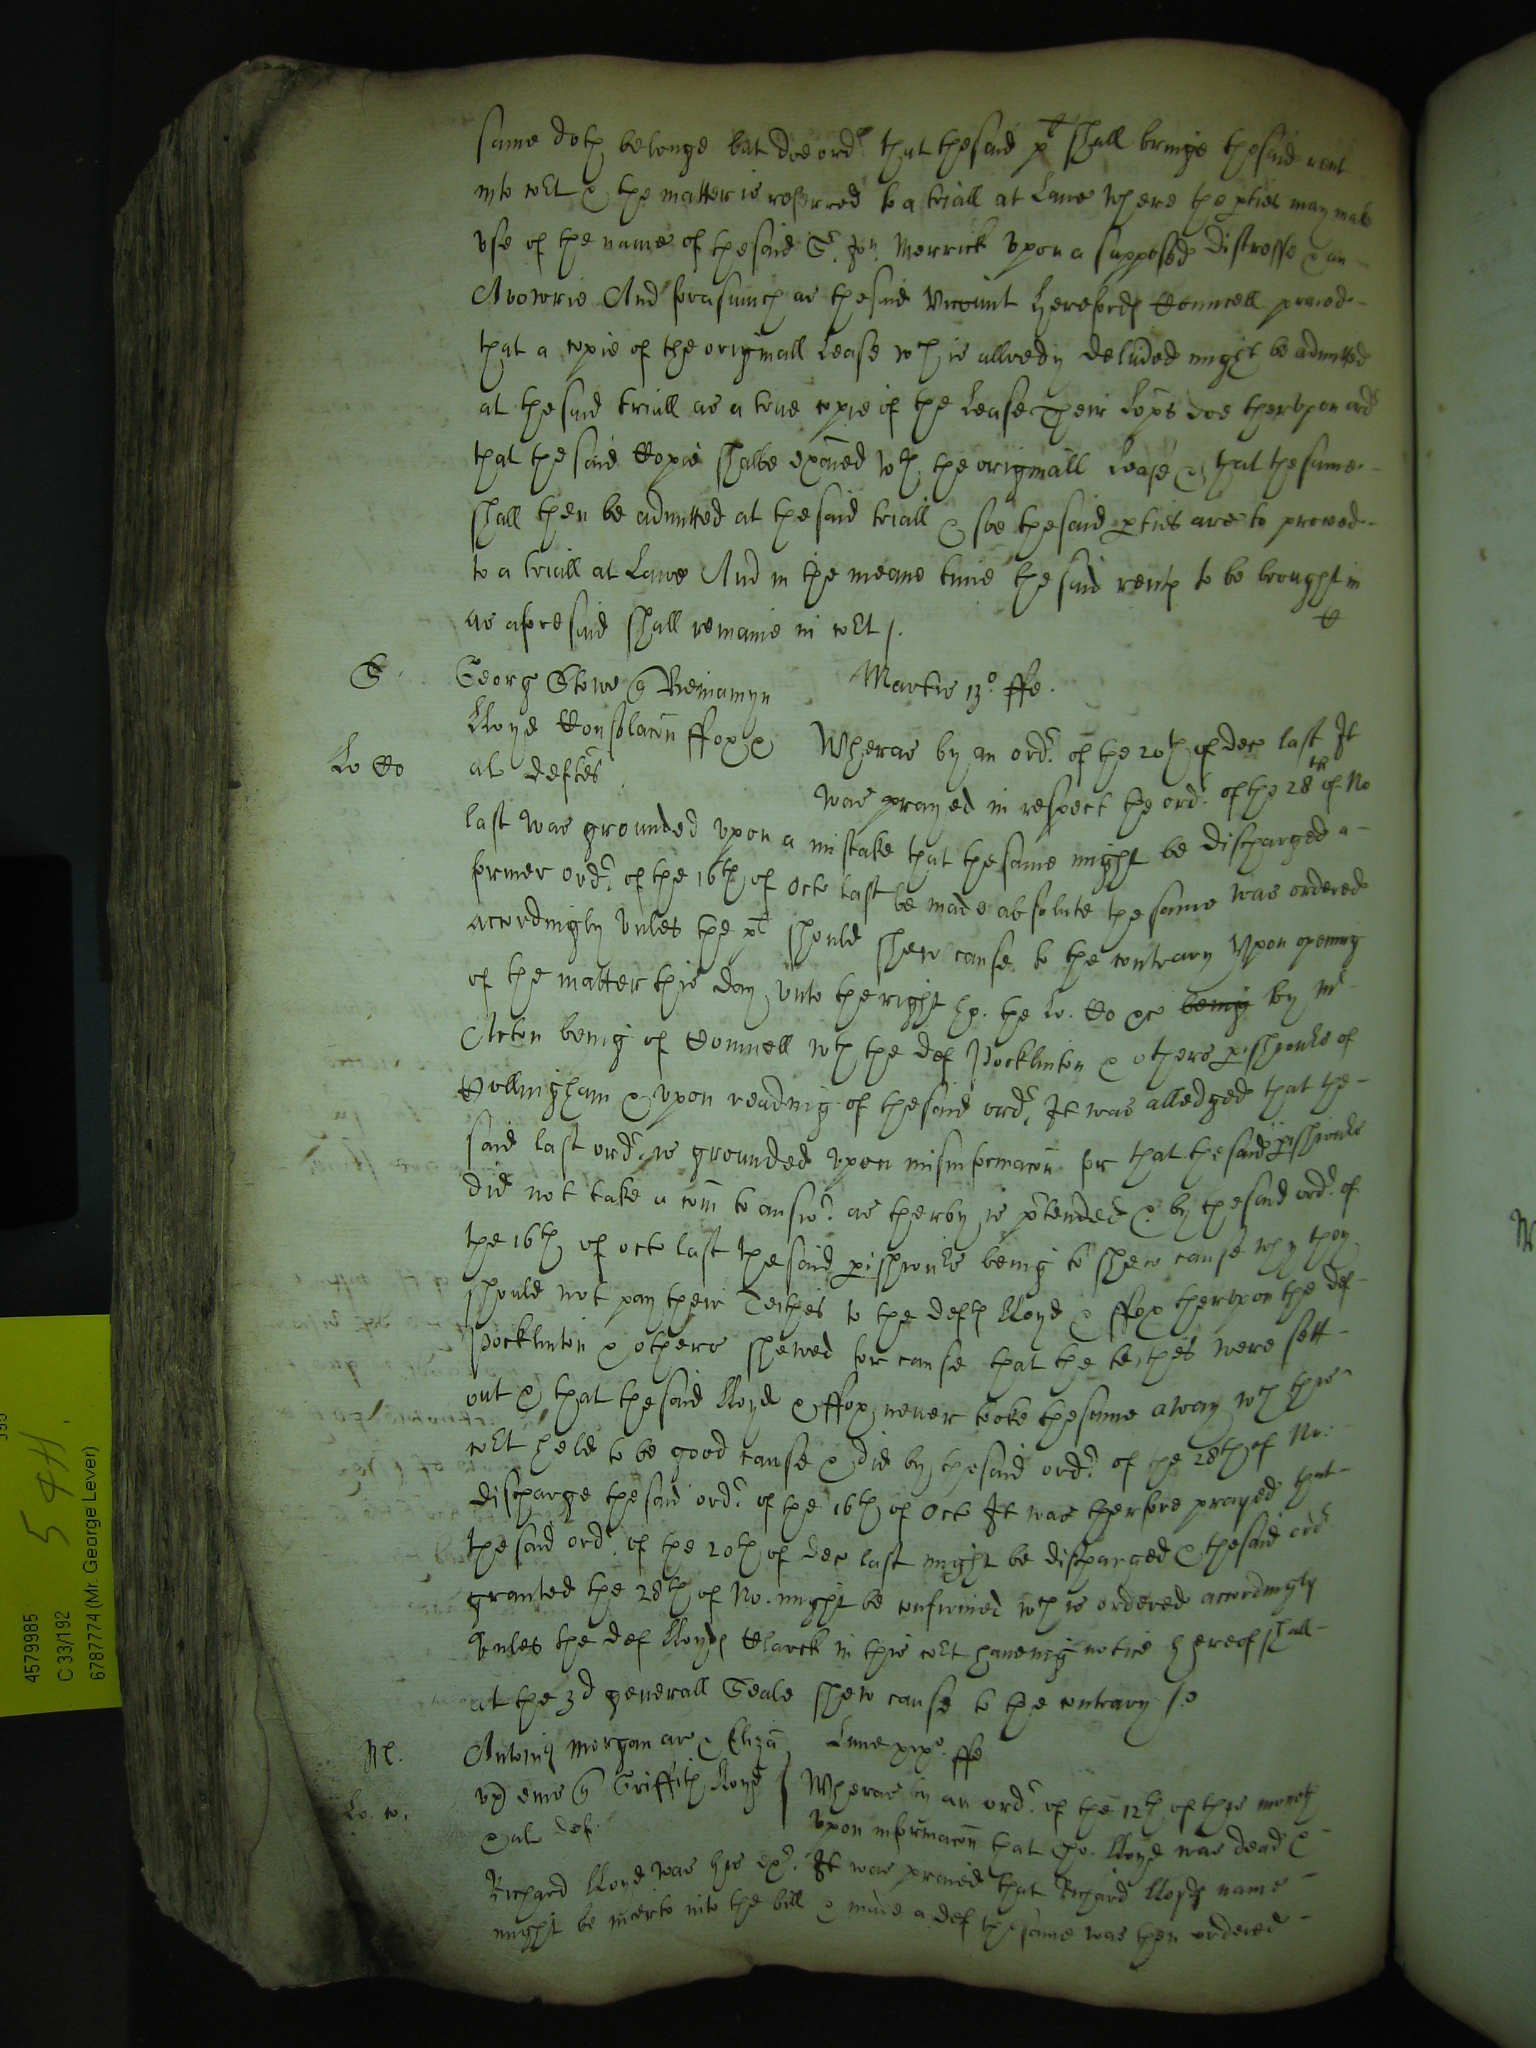 same doth belonge but doe ordr that the said plt shall bringe the said rent
into cort & the matter is referred to a triall at Lawe where the pties may make
vse of the name of the said Sr. Jon. Merrick vpon a supposed distresse & an
Avowrie And forasmuch as the said Vicount Herefords Councell praied
that a copie of the originall Lease wch is allredy deluded might be admitted
at the said triall as a true copie of the Lease Their Lopps doe thervpon ordr
that the said Copie shalbe exãied wth the originall Lease & that the same
shall then be admitted at the said triall & soe the said pties are to proceed
to a triall at Lawe And in the meane time the said rents to be brought in
as aforesaid shall remaine in cort /.
S
George Stowe q Beniamyn
Martis 13o. ffe.
Lloyd Consolacon ffox &
Wheras by an ordr. of the 20th of Dec last It
Lo Co
al deftes
was prayed in respect the ordr. of the 28th of No
last was grounded vpon a mistake that the same might be discharged a
former ordr. of the 16th of Octo last be made absolute the same was ordered
accordingly vnles the plt should shew cause to the contrary Vpon opening
of the matter this day vnto the right ho. the Lo. Co &c being by Mr
Acton being of Councell wth the def Pocklinton & others pishonrs of
Collingham & vpon reading of the said ordr. It was alledged that the
said last ordr. is grounded vpon misinformacon for that the said pishonrs
did not take a com to answr. as therby is ptended & by the said ordr. of
the 16th of octo last the said pishonrs being to shew cause why they
should not pay their Teithes to the defts Lloyd & ffox thervpon the def
Pocklinton & others shewed for cause that the teithes were sett
out & that the said Lloyd & ffox never tooke the same away wch this
cort held to be good cause & did by the said ordr. of the 28th of No.
discharge the said ordr. of the 16th of Octo It was therfore prayed that
the said ordr. of the 20th of Dec last might be discharged & the said ordr
granted the 28th of No. might be confirmed wch is ordered accordingly
vnles the def Lloyds Clarck in this cort haueing notice hereof shall
at the 3d generall Seale shew cause to the contrary /.
Antoniq Morgan ar & Eliza
Lune xixo. ffe
ux eius q Griffith Lloyd
Wheras by an ordr. of the 12th of this moneth
Lo. co.
& al def.
vpon informacon that the. Lloyd was dead &
Richard Lloyd was his exr. It was praied that Richard Lloyds name
might be inserto into the bill & made a def the same was then ordered
4579985
C 33/192
6787774 (Mr. George Lever)